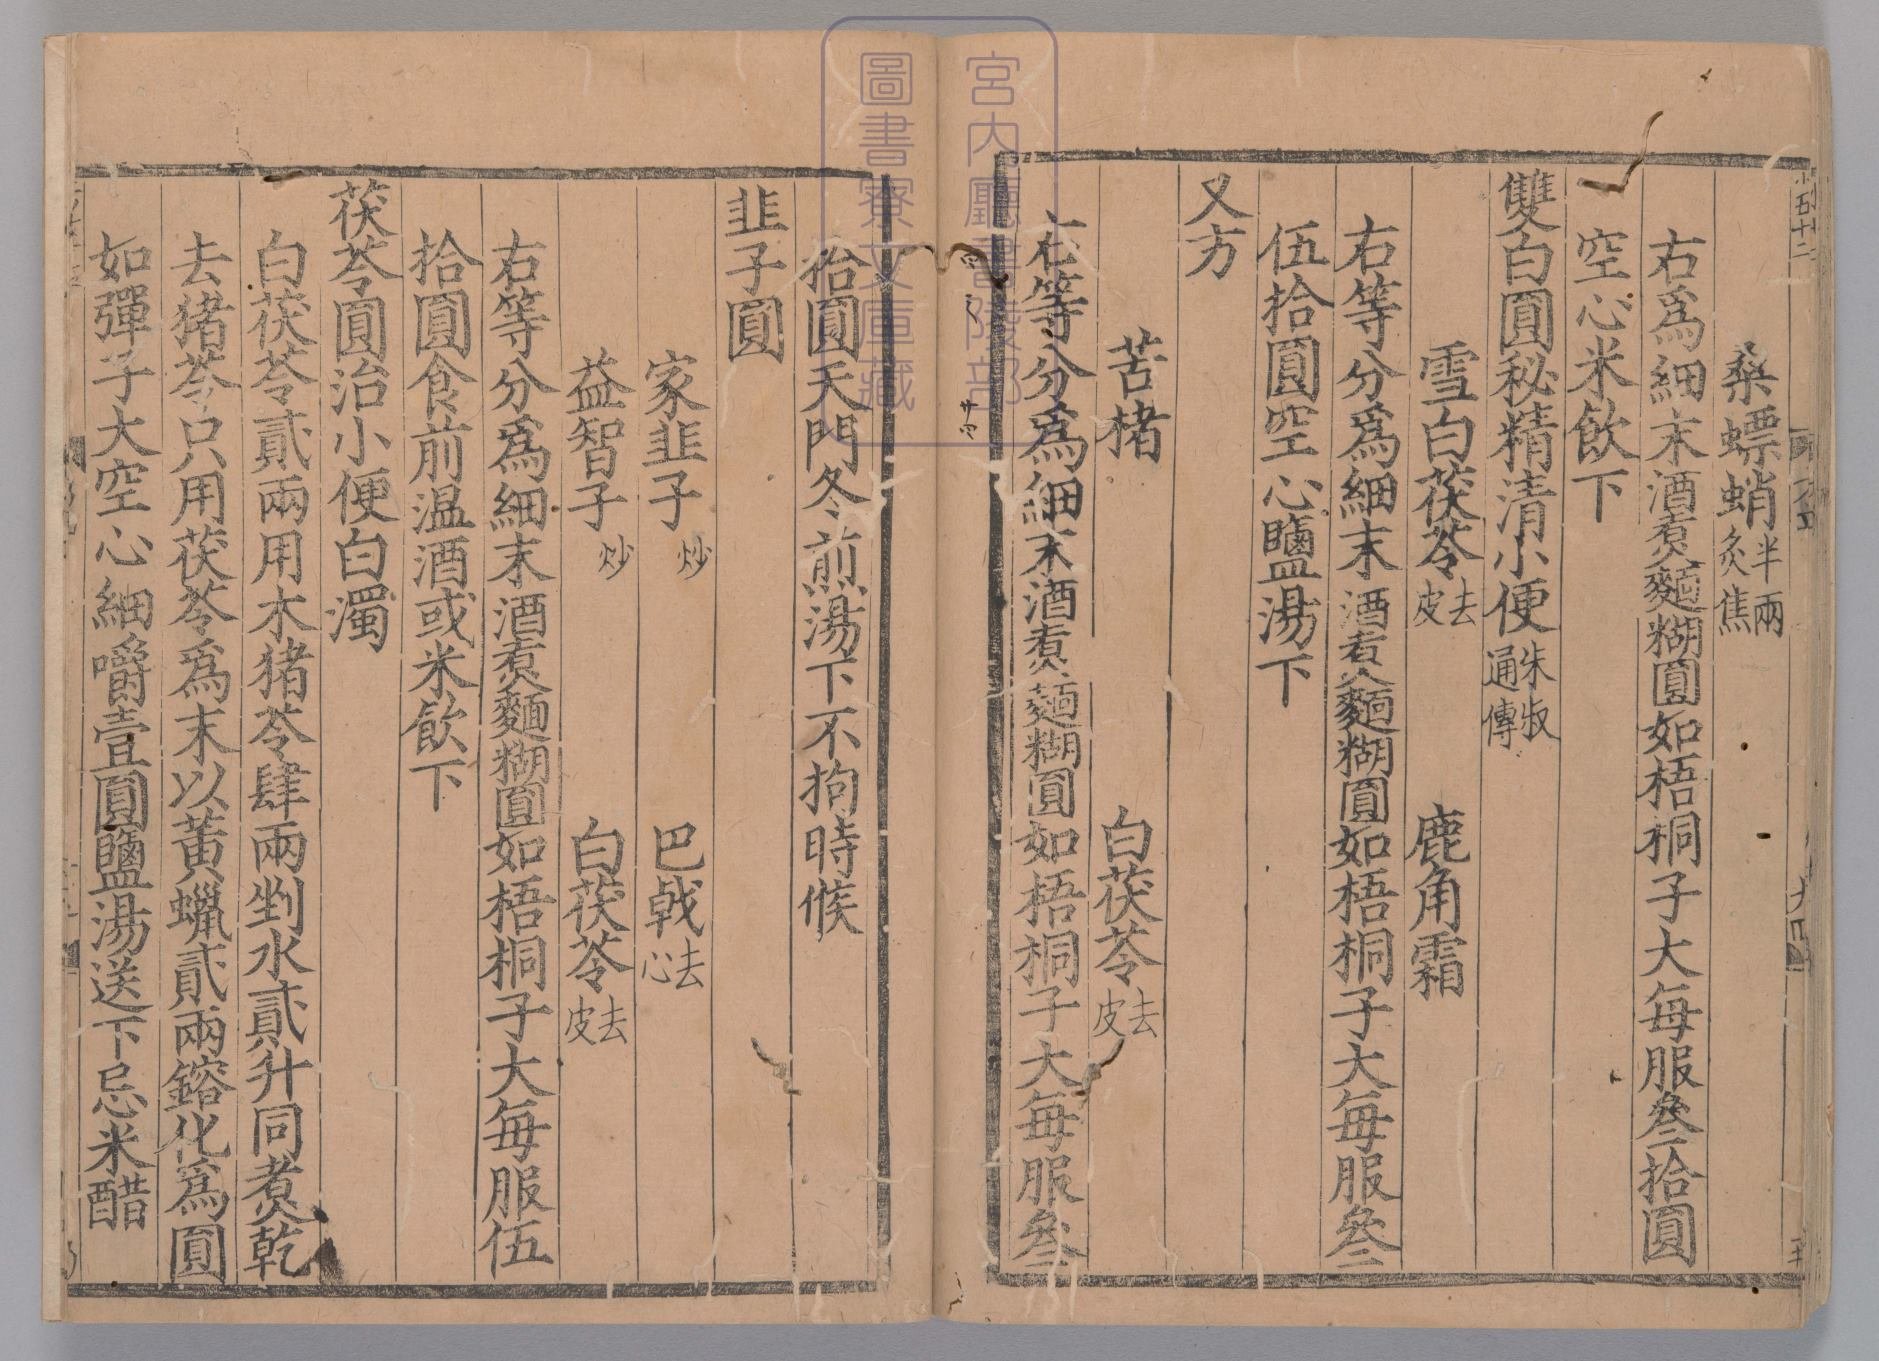 桑螵蛸半兩炙焦
右爲細末酒煑麵糊圓如梧桐子大每服叄拾圓
空心米飲下
雙白圓秘精清小便朱㕟通傳
雪白茯苓去皮 鹿角霜
右等分爲細末酒煑麵糊圓如梧桐子大每服叄
伍拾圓空心鹽湯下
又方
苦楮 白茯苓去皮
右等分爲細末酒煑麵糊圓如梧桐子大每服叄
拾圓天門冬煎湯下不拘時候
韭子圓
家韭子炒 巴戟去心
益智子炒 白茯苓去皮
右等分爲細末酒煑麵糊圓如梧桐子大每服伍
拾圓食前温酒或米飲下
茯苓圓治小便白濁
白茯苓貳兩用木猪苓肆兩剉水貳升同煑乾
去猪苓只用茯苓爲末以黄蠟貳兩鎔化爲圓
如彈子大空心細嚼壹圓鹽湯送下忌米醋
宮内廳書陵部
圖書寮文庫藏